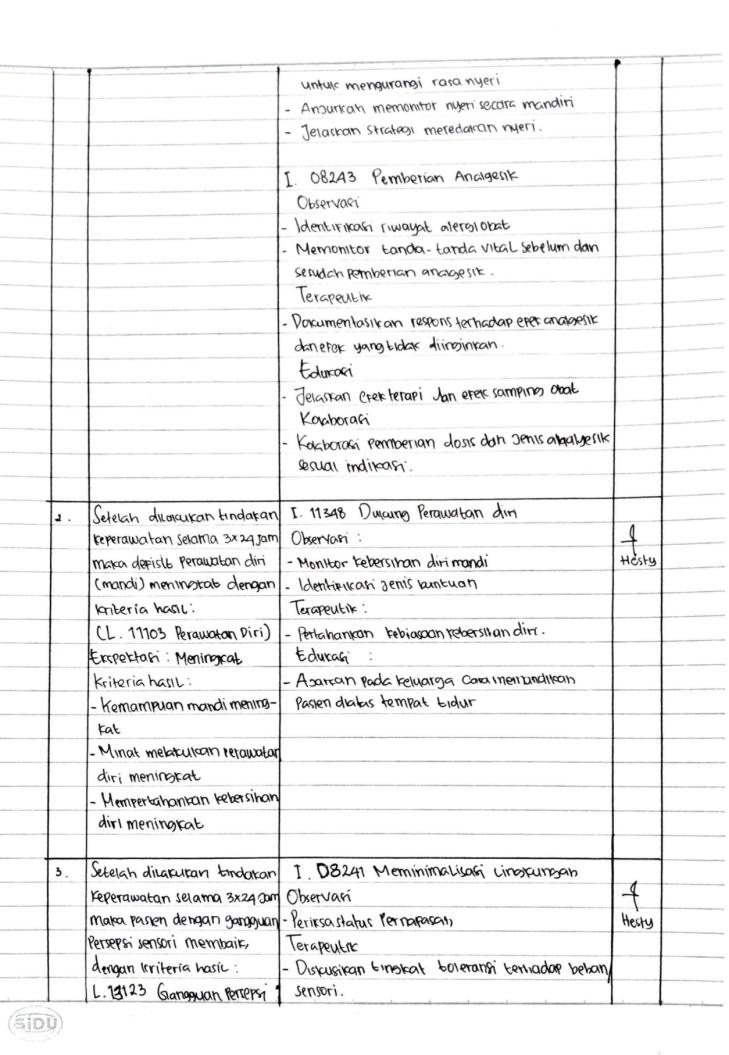 untuk mengurangi rasa nyeri
- Anjurkan memonitor nyeri secara mandiri
- Jelaskan strategi meredakan nyeri.
I. 08243 Pemberian Analgesik
Observasi
- Identifikasi riwayat alergi obat
- Memonitor tanda-tanda vital sebelum dan
sesudah pemberian anagesik.
Terapeutik
- Dokumentasikan respons terhadap efek analgesik
dan efek yang tidak diinginkan.
Edukasi
- Jelaskan efek terapi dan efek samping obat
Kolaborasi
- Kolaborasi pemberian dosis dan jenis analgesik
sesuai indikasi.
2.
Setelah dilakukan tindakan
keperawatan selama 3x24 jam
maka defisit perawatan diri
(mandi) meningkat dengan
kriteria hasil:
(L. 11103 Perawatan Diri)
Ekspektasi : Meningkat
Kriteria hasil :
- Kemampuan mandi mening-
kat
- Minat melakukan perawatan
diri meningkat
- Mempertahankan kebersihan
diri meningkat
I. 11348 Dukung Perawatan diri
Observasi :
- Monitor kebersihan diri mandi
- Identifikasi jenis bantuan
Terapeutik :
- Pertahankan kebiasaan kebersihan diri.
Edukasi :
- Ajarkan pada keluarga cara memandikan
Pasien diatas tempat tidur
Hesty
3.
Setelah dilakukan tindakan
keperawatan selama 3x24 jam
maka pasien dengan gangguan
Persepsi sensori membaik,
dengan kriteria hasil :
L. 13123 Gangguan Persepsi
I. 08241 Meminimalisasi Lingkungan
Observasi
- Periksa status Pernapasan,
Terapeutik
- Diskusikan tingkat toleransi terhadap beban
sensori.
Hesty
SiDU